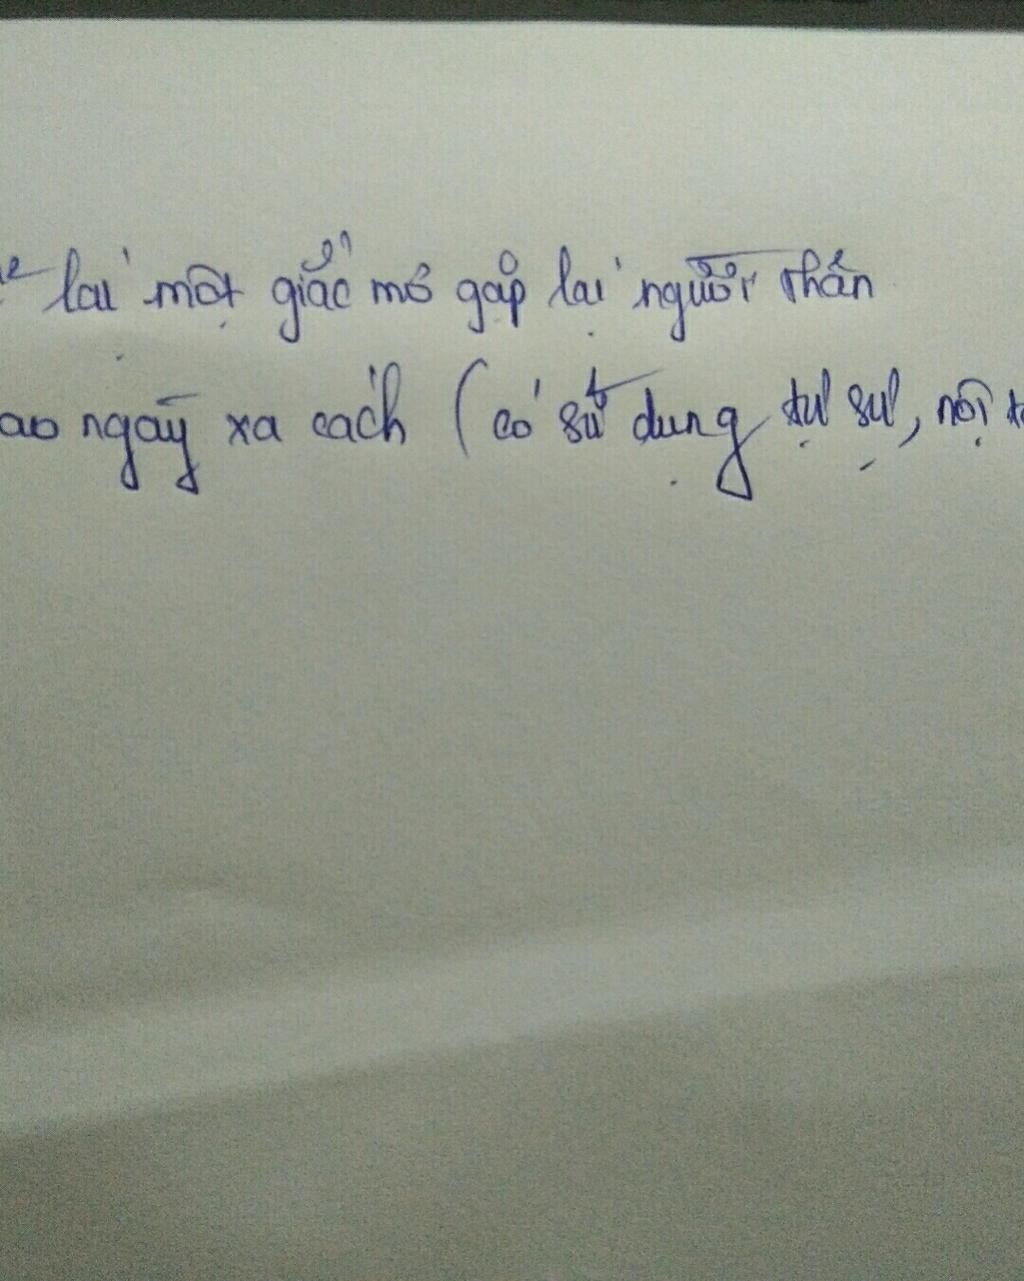 lại một giấc mơ gặp lại người thân
ngày xa cách (có sử dụng tự sự, nội